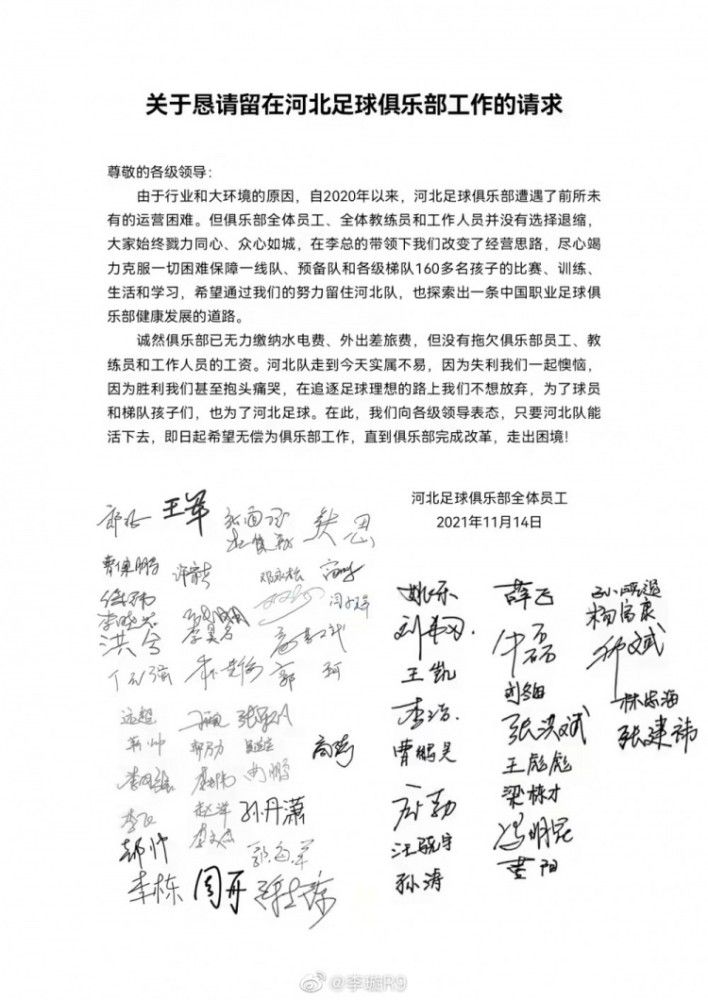 关于恳请留在河北足球俱乐部工作的请求
尊敬的各级领导：
由于行业和大环境的原因，自2020年以来，河北足球俱乐部遭遇了前所未
有的运营困难。但俱乐部全体员工、全体教练员和工作人员并没有选择退缩，
大家始终戮力同心、众心如城，在李总的带领下我们改变了经营思路，尽心竭
力克服一切困难保障一线队、预备队和各级梯队160多名孩子的比赛、训练、
生活和学习，希望通过我们的努力留住河北队，也探索出一条中国职业足球俱
乐部健康发展的道路。
诚然俱乐部已无力缴纳水电费、外出差旅费，但没有拖欠俱乐部员工、教
练员和工作人员的工资。河北队走到今天实属不易，因为失利我们一起懊恼，
因为胜利我们甚至抱头痛哭，在追逐足球理想的路上我们不想放弃，为了球员
和梯队孩子们，也为了河北足球。在此，我们向各级领导表态，只要河北队能
活下去，即日起希望无偿为俱乐部工作，直到俱乐部完成改革，走出困境！
河北足球俱乐部全体员工
2021年11月14日
王军
曹保鹏
洪兮
郭珂
远超
高
孙丹潇
李栋
周开
姚乐
王凯
李浩
曹鹏昊
孙涛
薛飞
牛磊
张洪斌
王彪彪
梁栋才
冯明昆
黄阳
杨富康
林忠海
张建祎
@李璇R9